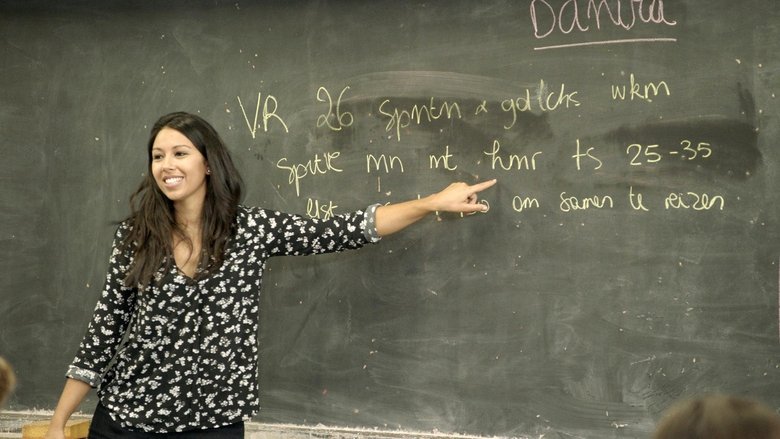 Danira
VR 26 Spntn & gdlcks wkm
Sputke mn mt hmr ts 25-35
om samen te reizen